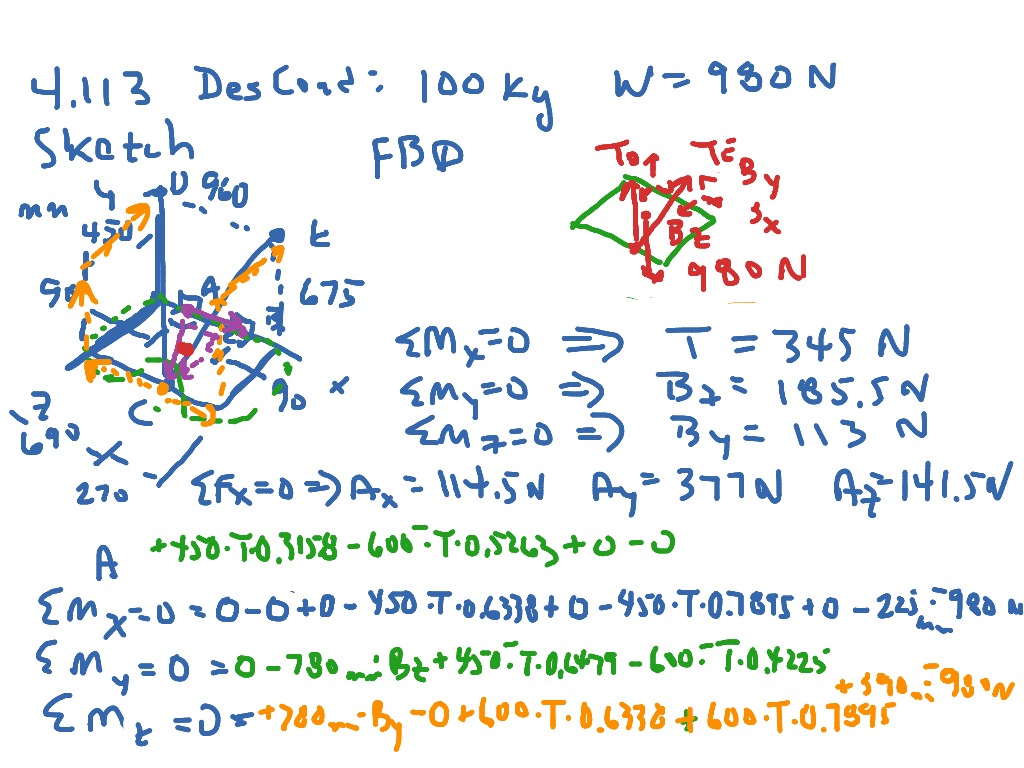 4.113 DesCond: 100 Kg W = 980 N
Sketch FBD
y D 960
mm 450
E
90 A 675
B
C 90 x
z
690
270
TD TE By
Bx
Bz
980 N
ΣMx=0 => T = 345 N
ΣMy=0 => Bz = 185.5N
ΣMz=0 => By = 113 N
ΣFx=0 => Ax = 114.5N Ay = 377N Az=141.5N
A +450·T·0.3158-600·T·0.5263+0-0
ΣMx=0=0-0+0-450·T·0.6338+0-450·T·0.7895+0-225mm·-980N
ΣMy=0=0-780mm·Bz+450·T·0.6479-600·T·0.4225
+390mm·-980N
ΣMz=0=+780mm·By-0+600·T·0.6338+600·T·0.7895